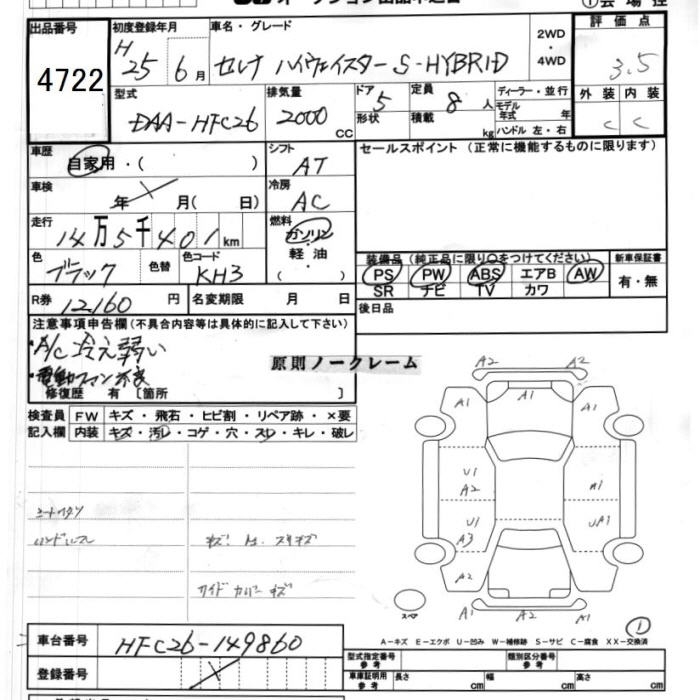 出品番号
4722
初度登録年月
H 25 6月
車名・グレード
セレナ ハイウェイスター S-HYBRID
2WD
・
4WD
評価点
3.5
型式
DAA-HFC26
排気量
2000 CC
ドア 5
形状
定員 8 人
積載 kg
ディーラー・並行
モデル年式 年
ハンドル 左・右
外装 内装
C C
車歴
自家用・( )
シフト
AT
セールスポイント (正常に機能するものに限ります)
車検
年 月( 日)
冷房
AC
走行
14万5千401km
燃料
ガソリン
軽油
・( )
色
ブラック
色替
色コード
KH3
装備品 (純正品に限り○をつけてください)
PS PW ABS エアB AW
SR ナビ TV カワ
新車保証書
有・無
R券 12160 円
名変期限 月 日
後日品
注意事項申告欄 (不具合内容等は具体的に記入して下さい)
・A/C 冷え弱い
・電動ファン不良
修復歴 有 [箇所 ]
原則ノークレーム
検査員記入欄
FW キズ・飛石・ヒビ割・リペア跡・×要
内装 キズ・汚レ・コゲ・穴・スレ・キレ・破レ
A2 A2
A1 A1 A1
U1
A2 A1
U1 UA1
A3
A2 A1
A1 A2 A1
スペア
1
A-キズ E-エクボ U-凹み W-補修跡 S-サビ C-腐食 XX-交換済
車台番号
HFC26-149860
登録番号
型式指定番号
参考
類別区分番号
参考
車庫証明用
参考
長さ cm
幅 cm
高さ cm